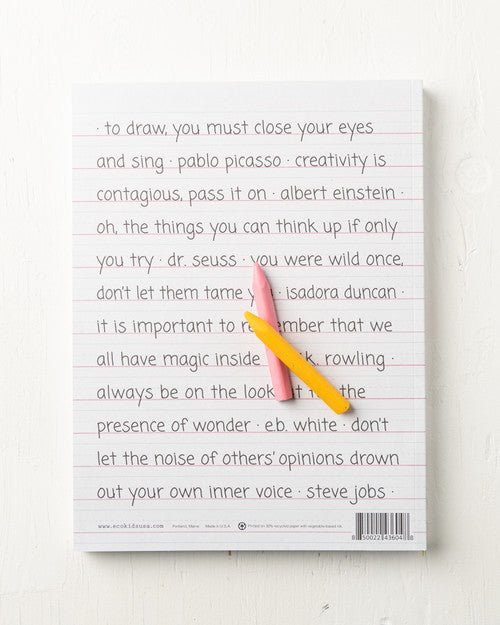 · to draw, you must close your eyes
and sing · pablo picasso · creativity is
contagious, pass it on · albert einstein ·
oh, the things you can think up if only
you try · dr. seuss · you were wild once,
don't let them tame · isadora duncan ·
it is important to that we
all have magic inside k. rowling ·
always be on the the
presence of wonder · e.b. white · don't
let the noise of others' opinions drown
out your own inner voice · steve jobs ·
www.ecokidsusa.com Portland, Maine Made in U.S.A. Printed on 30% recycled paper with vegetable-based ink.
8 50022 43604 8